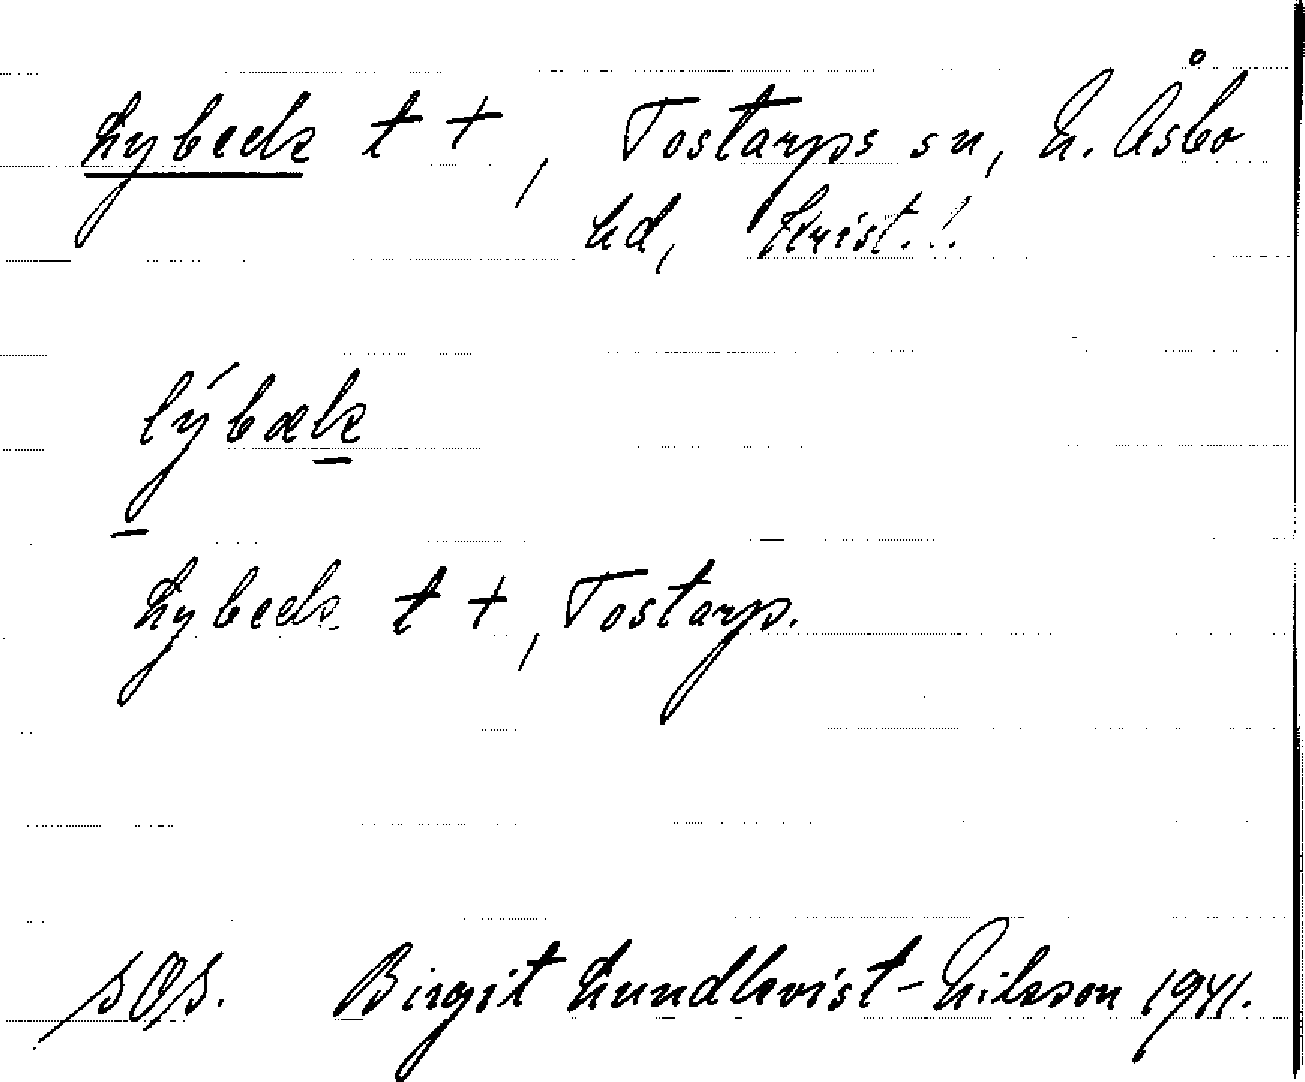 Lybeck t +, Tostarps sn, N. Åsbo
hd, Krist. l.
lýbæk
Lybeck t +, Tostarp.
SOS. Birgit Lundkvist-Nilsson 1941.